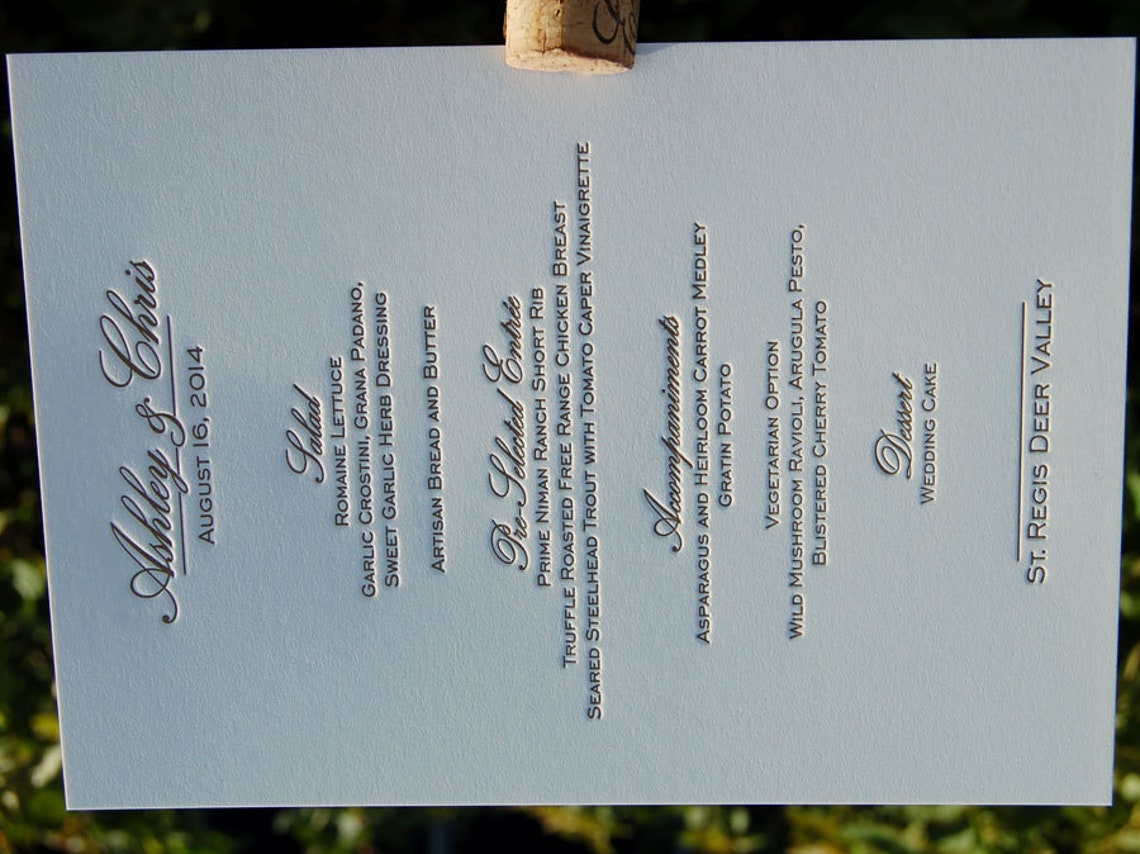 Ashley & Chris
August 16, 2014
Salad
Romaine Lettuce
Garlic Crostini, Grana Padano,
Sweet Garlic Herb Dressing
Artisan Bread and Butter
Pre-Selected Entrée
Prime Niman Ranch Short Rib
Truffle Roasted Free Range Chicken Breast
Seared Steelhead Trout with Tomato Caper Vinaigrette
Accompaniments
Asparagus and Heirloom Carrot Medley
Gratin Potato
Vegetarian Option
Wild Mushroom Ravioli, Arugula Pesto,
Blistered Cherry Tomato
Dessert
Wedding Cake
St. Regis Deer Valley